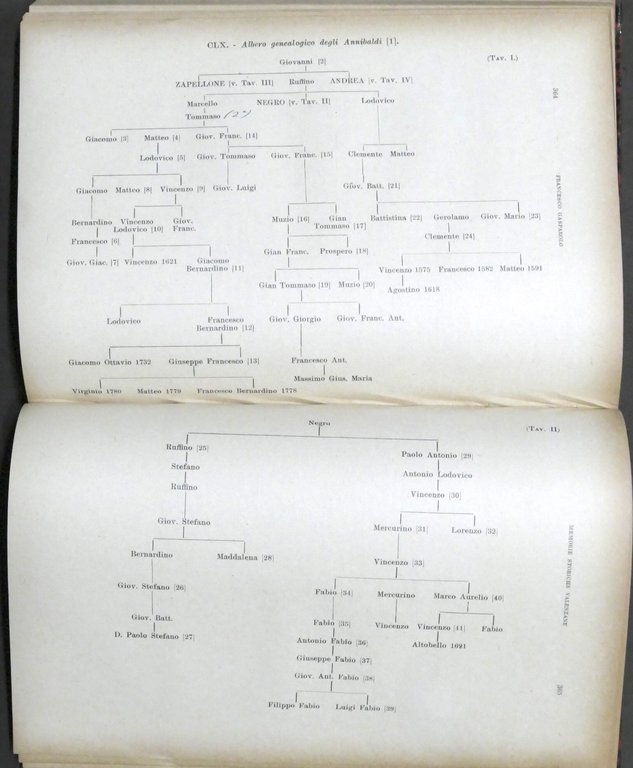 CLX. - Albero genealogico degli Annibaldi [1].
(Tav. I.)
Giovanni [2]
ZAPELLONE [v. Tav. III] Ruffino ANDREA [v. Tav. IV]
Marcello NEGRO [v. Tav. II] Lodovico
Tommaso
Giacomo [3] Matteo [4] Giov. Franc. [14]
Lodovico [5] Giov. Tommaso Giov. Franc. [15] Clemente Matteo
Giacomo Matteo [8] Vincenzo [9] Giov. Luigi Giov. Batt. [21]
Bernardino Vincenzo Giov. Muzio [16] Gian Battistina [22] Gerolamo Giov. Mario [23]
Lodovico [10] Franc. Tommaso [17]
Francesco [6] Clemente [24]
Gian Franc. Prospero [18]
Giov. Giac. [7] Vincenzo 1621 Giacomo
Bernardino [11] Vincenzo 1575 Francesco 1582 Matteo 1591
Gian Tommaso [19] Muzio [20] Agostino 1618
Lodovico Francesco Giov. Giorgio Giov. Franc. Ant.
Bernardino [12]
Giacomo Ottavio 1732 Giuseppe Francesco [13] Francesco Ant.
Massimo Gius. Maria
Virginio 1780 Matteo 1779 Francesco Bernardino 1778
364
FRANCESCO GASPAROLO
Negro
(Tav. II)
Ruffino [25] Paolo Antonio [29]
Stefano Antonio Lodovico
Ruffino Vincenzo [30]
Giov. Stefano Mercurino [31] Lorenzo [32]
Bernardino Maddalena [28] Vincenzo [33]
Giov. Stefano [26] Fabio [34] Mercurino Marco Aurelio [40]
Giov. Batt. Fabio [35] Vincenzo Vincenzo [41] Fabio
D. Paolo Stefano [27] Antonio Fabio [36] Altobello 1621
Giuseppe Fabio [37]
Giov. Ant. Fabio [38]
Filippo Fabio Luigi Fabio [39]
MEMORIE STORICHE VALENZANE
365